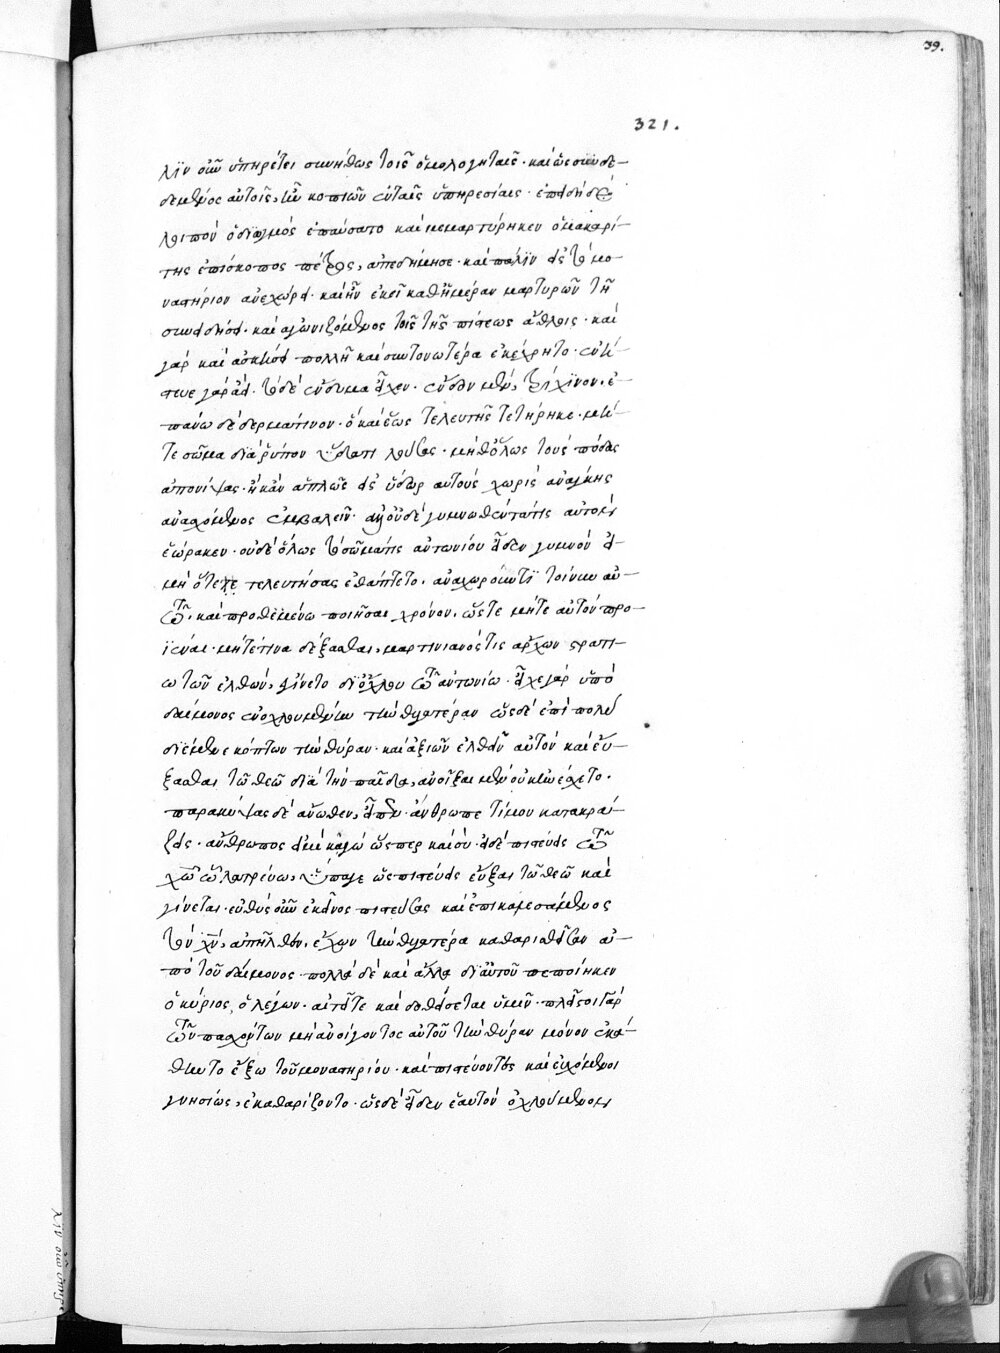 39.
321.
λὶν οὖν ὑπηρέτει συνήθως τοῖς ὁμολογηταῖς· καὶ ὡς συνδε-
δεμένος αὐτοῖς, ἦν κοπιῶν ἐν ταῖς ὑπηρεσίαις· ἐπειδὴ δὲ
λοιπὸν ὁ διωγμὸς ἐπαύσατο καὶ μεμαρτύρηκεν ὁ μακαρί-
της ἐπίσκοπος πέτρος, ἀπεδήμησε· καὶ πάλιν εἰς τὸ μο-
ναστήριον ἀνεχώρει· καὶ ἦν ἐκεῖ καθημέραν μαρτυρῶν τῇ
συνειδήσει· καὶ ἀγωνιζόμενος τοῖς τῆς πίστεως ἄθλοις· καὶ
γὰρ καὶ ἀσκήσει πολλῇ καὶ συντονωτέρα ἐκέχρητο· ἐνή-
στευε γὰρ ἀεί· τὸ δὲ ἔνδυμα εἶχεν· ἔσωθεν μὲν, τρίχινον, ἐ-
πάνω δὲ δερμάτινον· ὃ καὶ ἕως τελευτῆς τετήρηκε· μή-
τε σῶμα διὰ ῥύπον ὕδατι λούσας· μὴθ' ὅλως τοὺς πόδας
ἀπονίψας· ἢ κἂν ἁπλῶς εἰς ὕδωρ αὐτοὺς χωρὶς ἀνάγκης
ἀνασχόμενος ἐμβαλεῖν· ἀλλ' οὐδὲ γυμνωθέντα τὶς αὐτὸν
ἑώρακεν· οὐδὲ ὅλως τὸ σῶμά τις ἀντωνίου εἶδεν γυμνὸν εἰ
μὴ ὅτε τελευτήσας ἐθάπτετο· ἀναχωροῦντι τοίνυν αὐ-
τῷ, καὶ προθεμένω ποιῆσαι χρόνον, ὥστε μήτε αὐτὸν προ-
ϊέναι· μήτε τινα δέξασθαι, μαρτινιανός τις ἄρχων στρατι-
ωτῶν ἐλθὼν, γίνεται δι' ὄχλου τῷ ἀντωνίω· εἶχε γὰρ ὑπὸ
δαίμονος ἐνοχλουμένην τὴν θυγατέραν ὡς δὲ ἐπὶ πολὺ
διέμενε κόπτων τὴν θύραν· καὶ ἀξιῶν ἐλθεῖν αὐτὸν καὶ εὔ-
ξασθαι τῷ θεῷ διὰ τὴν παῖδα, ἀνοῖξαι μὲν οὐκ ἠνέσχετο·
παρακύψας δὲ ἄνωθεν, εἶπεν· ἄνθρωπε τί μου κατακρά-
ζεις· ἄνθρωπος εἰμὶ κἀγὼ ὥσπερ καὶ σύ· εἰ δὲ πιστεύεις τῷ
χῶ ᾧ λατρεύω, ὕπαγε ὡς πιστεύεις εὖξαι τῷ θεῷ καὶ
γίνεται· εὐθὺς οὖν ἐκεῖνος πιστεύσας καὶ ἐπικαλεσάμενος
τὸν χν, ἀπῆλθεν, ἔχων τὴν θυγατέρα καθαρισθεῖσαν ἀ-
πὸ τοῦ δαίμονος· πολλὰ δὲ καὶ ἄλλα δι' αὐτοῦ πεποίηκεν
ὁ κύριος, ὁ λέγων· αἰτεῖτε καὶ δοθήσεται ὑμῖν· πλεῖστοι γὰρ
τῶν πασχόντων μὴ ἀνοίγοντος αὐτοῦ τὴν θύραν μόνον ἐκά-
θηντο ἔξω τοῦ μοναστηρίου· καὶ πιστεύοντες καὶ εὐχόμενοι
γνησίως, ἐκαθαρίζοντο· ὡς δὲ εἶδεν ἑαυτὸν ὀχλούμενον